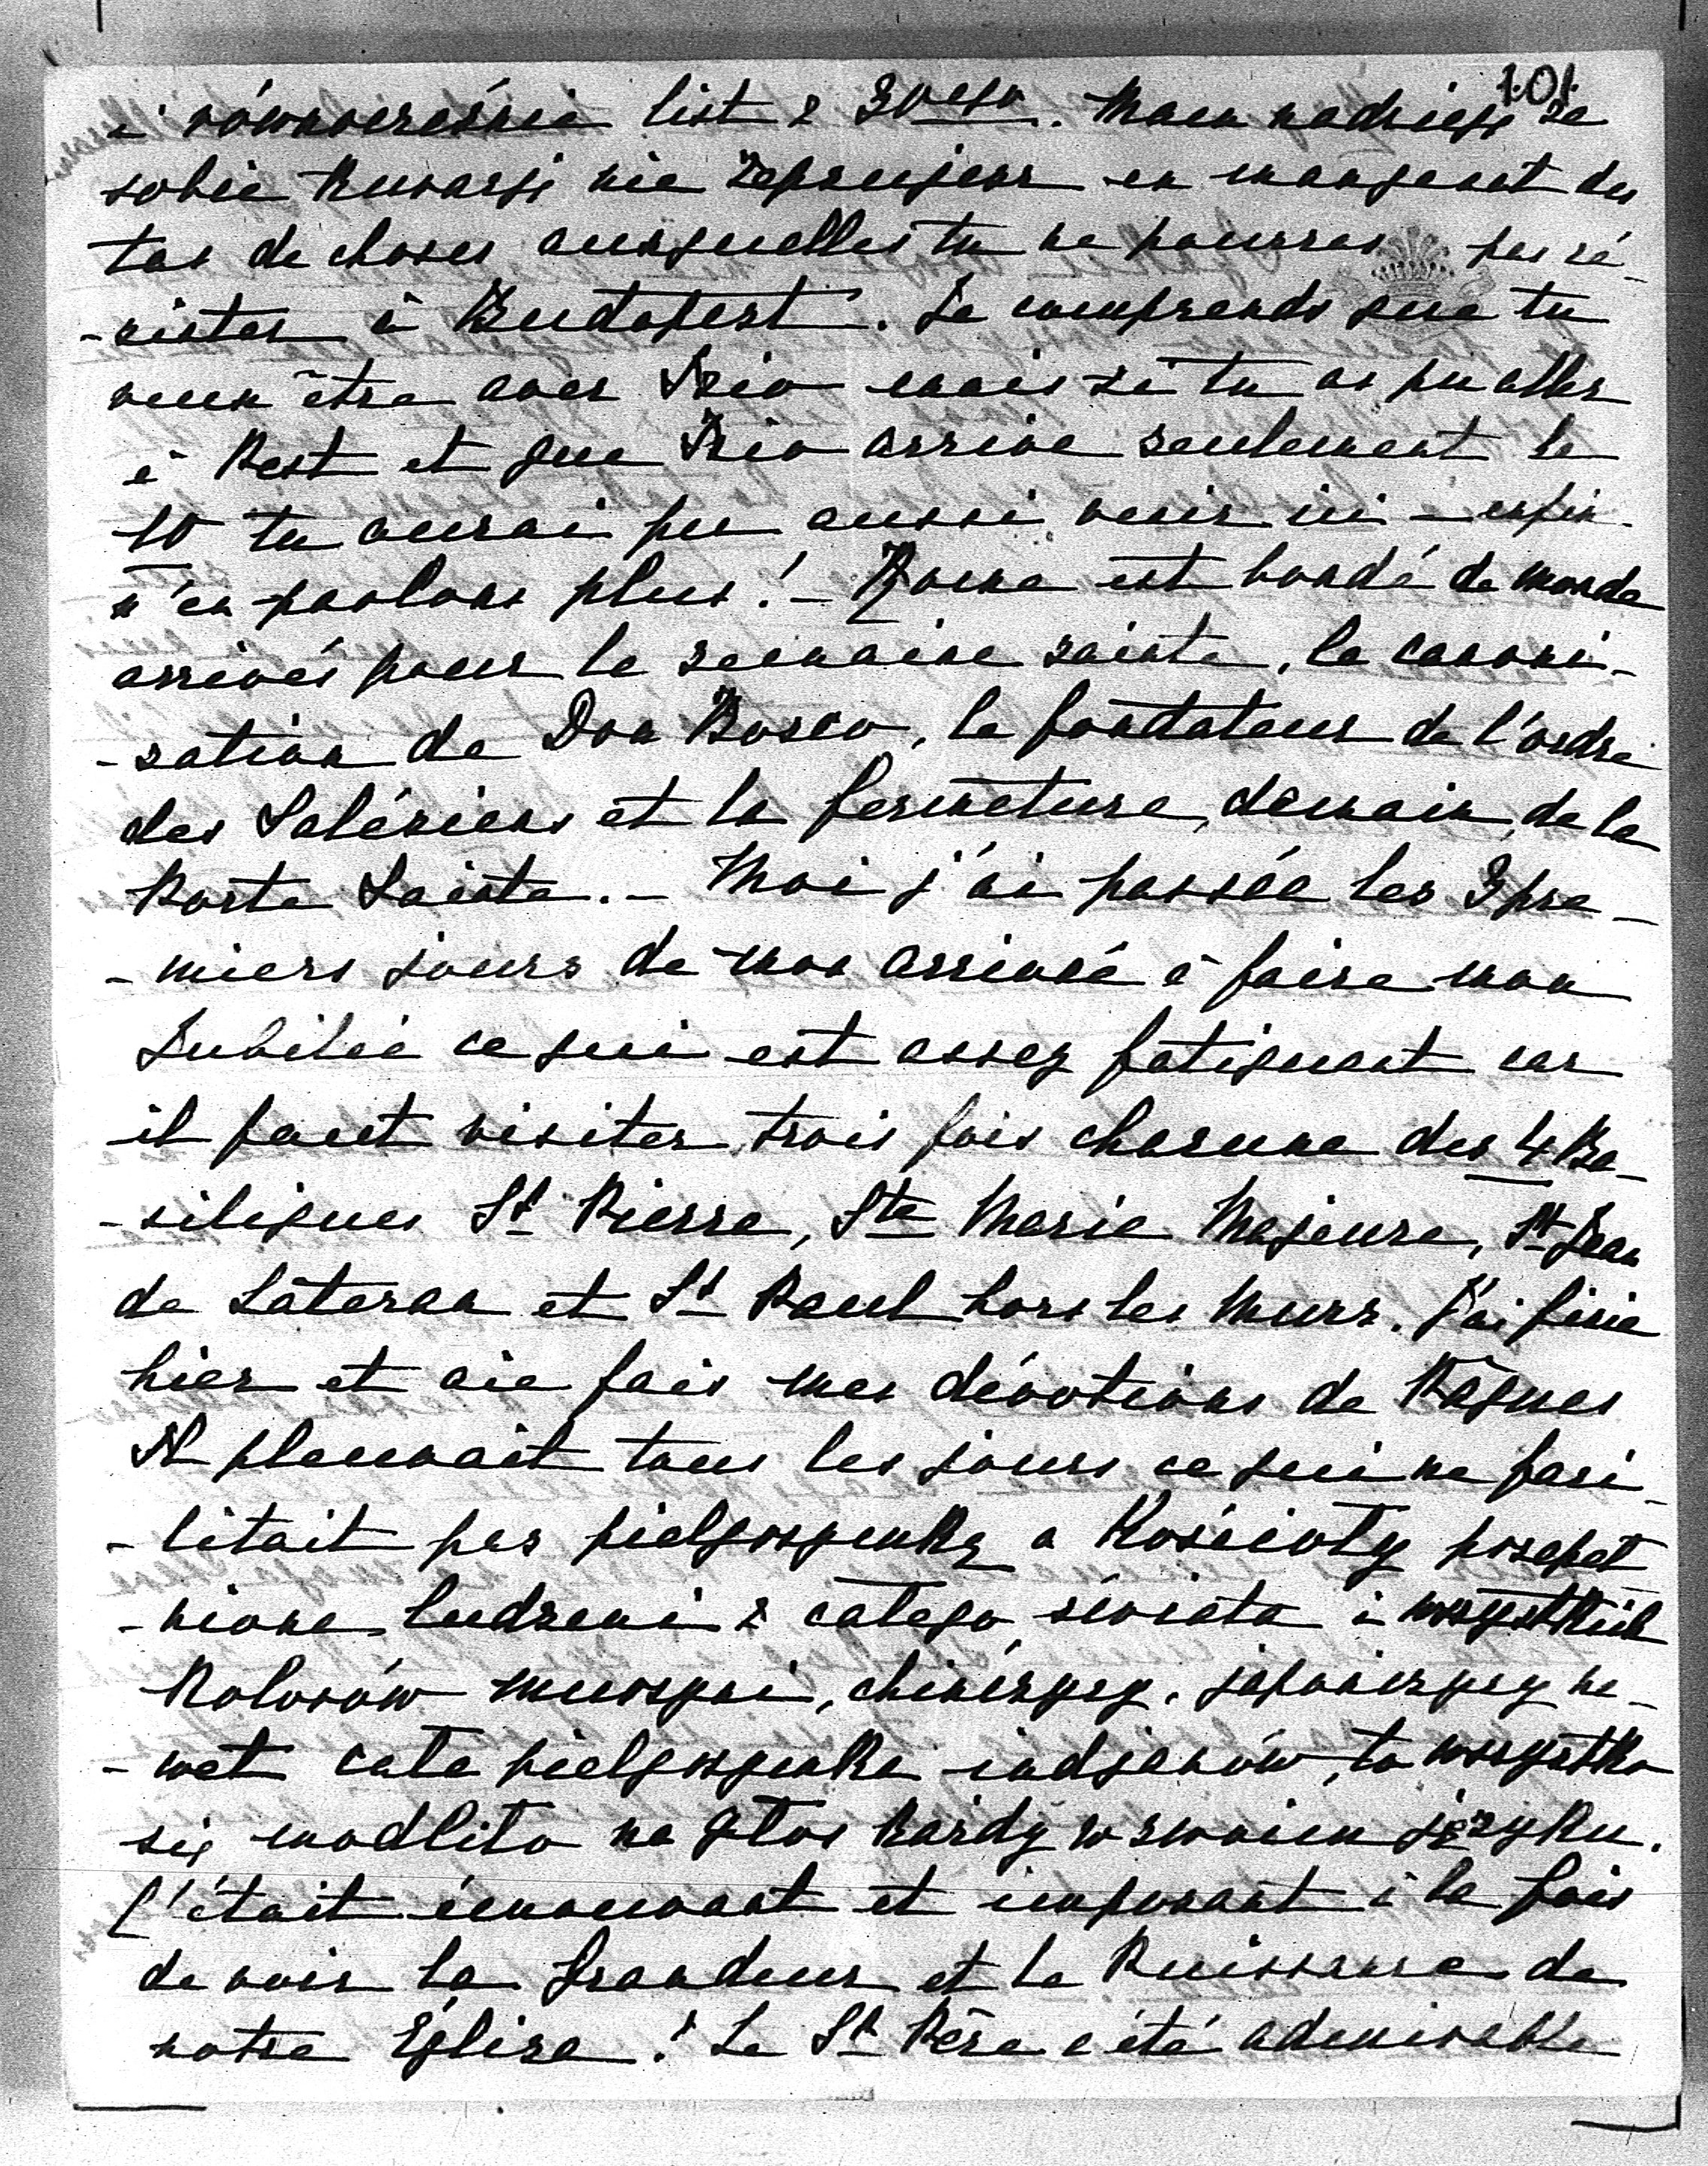 101.
i równocześnie list z 30ego. Mam nadzieję że
sobie kuracji nie zepsujesz en mangeant des
tas de choses auxquelles tu ne pourras pas ré-
-sister à Budapest. Je comprends que tu
veux être avec mais si tu as pu aller
à Pest et que arrive seulement le
10 tu aurai pu aussi venir ici – enfin
n'en parlons plus! – Rome est bondé de monde
arrivés pour la semaine sainte, la canoni-
-sation de Don Bosco, le fondateur de l'ordre
des Salésiens et la fermeture, demain, de la
Porte Sainte. – Moi j'ai passée les 3 pre-
-miers jours de mon arrivée à faire mon
Jubilée ce qui est assez fatiguant car
il faut visiter trois fois chacune des 4 Ba-
-siliques St Pierre, Ste Marie Majeure, St Jean
de Lateran et St Paul hors les Murs. J'ai finie
hier et aie fais mes dévotions de Pâques
Il pleuvait tous les jours ce qui ne faci-
-litait pas pielgrzymkę a Kościoły przepeł
-nione ludzmi z całego świata i wszystkich
Kolorów murzyni, chińczycy, japończycy na-
-wet cała pielgrzymka indjanów, to wszystko
się modliło na głos każdy w swoim języku.
C'était émouvant et imposant à la fois
de voir la Grandeur et la Puissance de
notre Église! Le St Père a été admirable